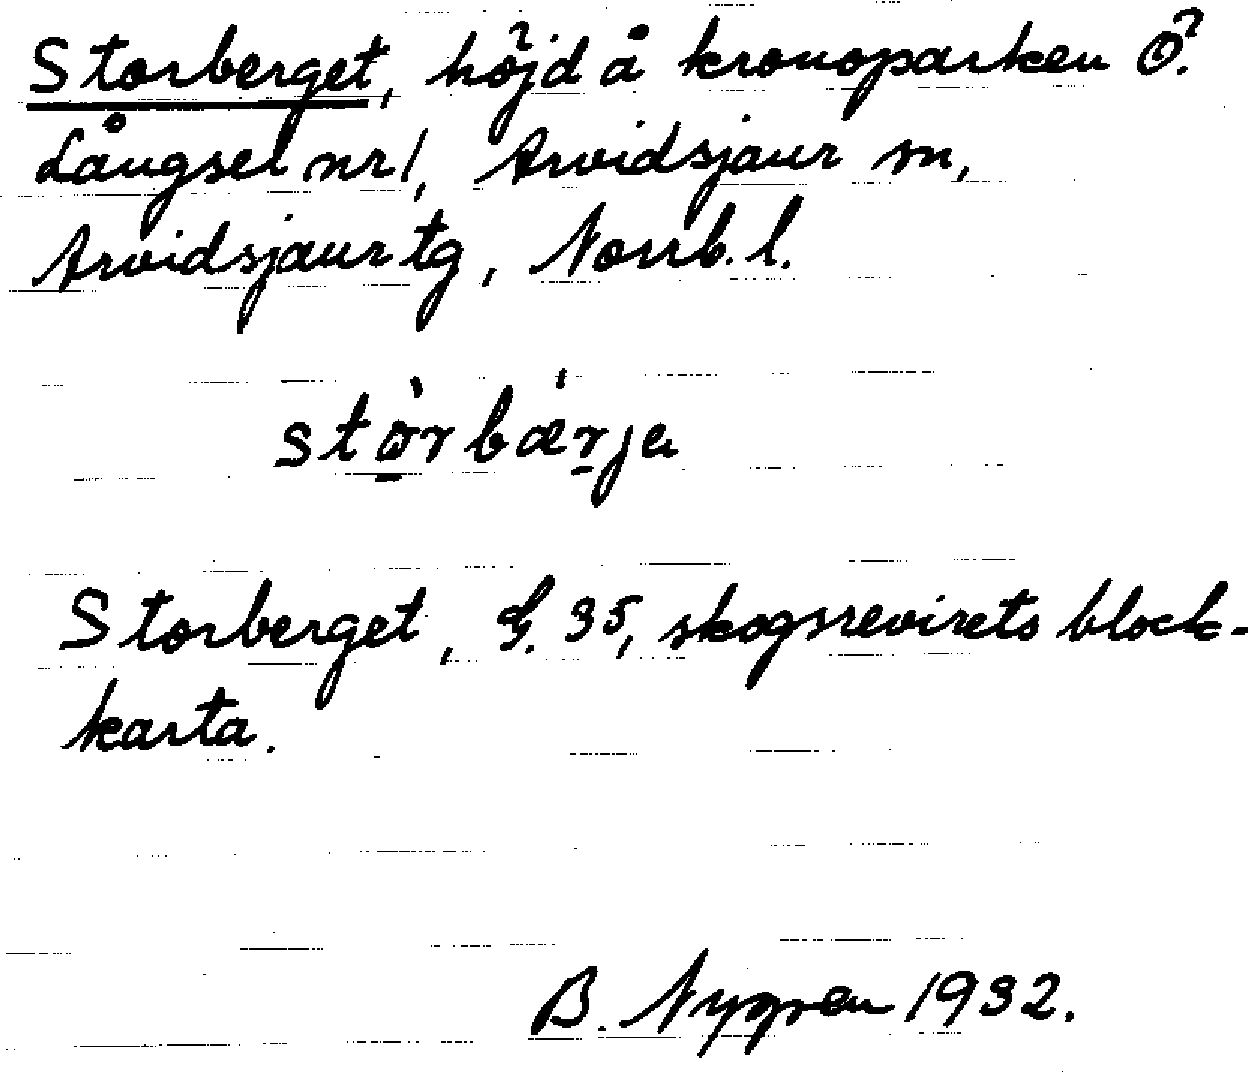 Storberget, höjd å kronoparken Ö.
Långsel nr 1, Arvidsjaur sn,
Arvidsjaur tg, Norrb. l.
stòrbǽrja
Storberget, G. 35, skogsrevirets block-
karta.
B. Nygren 1932.